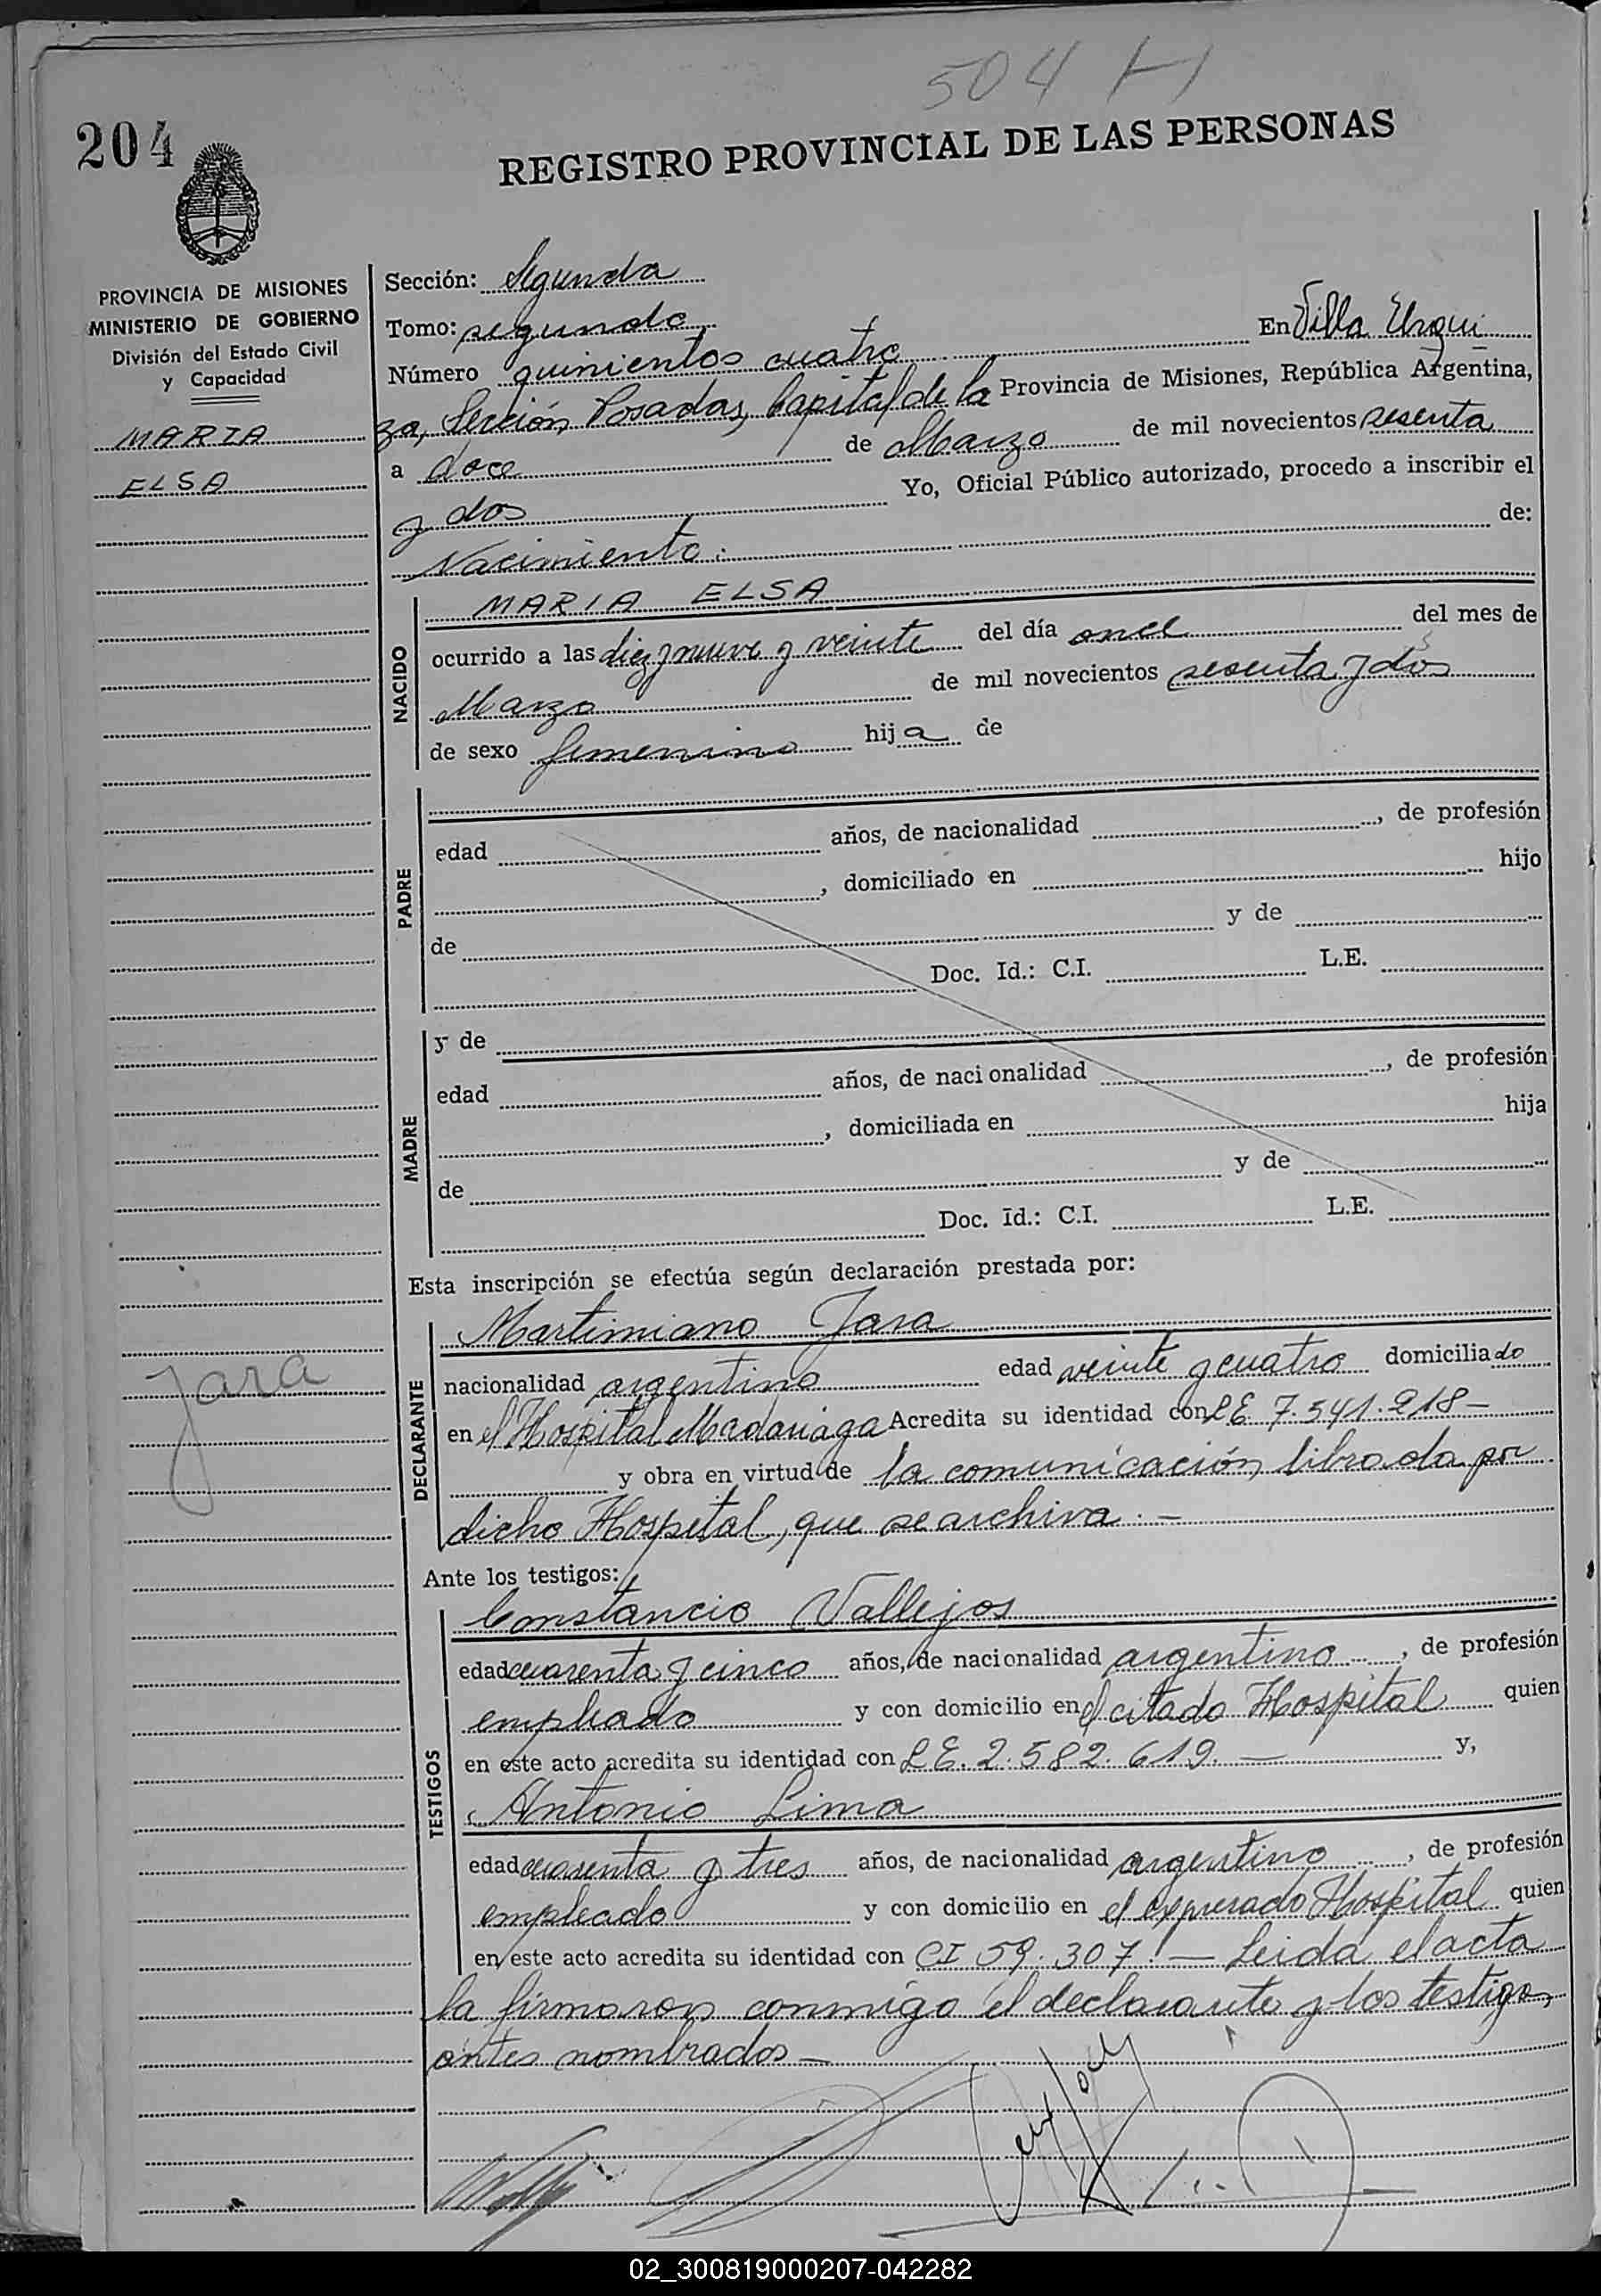 504 H
204
REGISTRO PROVINCIAL DE LAS PERSONAS
PROVINCIA DE MISIONES
MINISTERIO DE GOBIERNO
División del Estado Civil
y Capacidad
MARIA
ELSA
Jara
Sección: Segunda
Tomo: segundo
Número quinientos cuatro En Villa Urqui
za, Sección Posadas, Capital de la Provincia de Misiones, República Argentina,
a doce de Marzo de mil novecientos sesenta
y dos Yo, Oficial Público autorizado, procedo a inscribir el
Nacimiento: de:
NACIDO
MARIA ELSA
ocurrido a las diez y nueve y veinte del día once del mes de
Marzo de mil novecientos sesenta y dos
de sexo femenino hija de
PADRE
edad años, de nacionalidad , de profesión
, domiciliado en hijo
de y de
Doc. Id.: C.I. L.E.
MADRE
y de
edad años, de nacionalidad , de profesión
, domiciliada en hija
de y de
Doc. Id.: C.I. L.E.
Esta inscripción se efectúa según declaración prestada por:
DECLARANTE
Martimiano Jara
nacionalidad argentino edad veinte y cuatro domiciliado
en el Hospital Madariaga Acredita su identidad con LE 7.541.218-
y obra en virtud de la comunicación librada por
dicho Hospital, que se archiva.-
Ante los testigos:
TESTIGOS
Constancio Vallejos
edad cuarenta y cinco años, de nacionalidad argentino , de profesión
empleado y con domicilio en el citado Hospital quien
en este acto acredita su identidad con LE. 2.582.619.- y,
Antonio Lima
edad cuarenta y tres años, de nacionalidad argentino , de profesión
empleado y con domicilio en el expresado Hospital quien
en este acto acredita su identidad con CI 59.307.- Leida el acta
la firmaron conmigo el declarante y los testigos
antes nombrados-
02_300819000207-042282